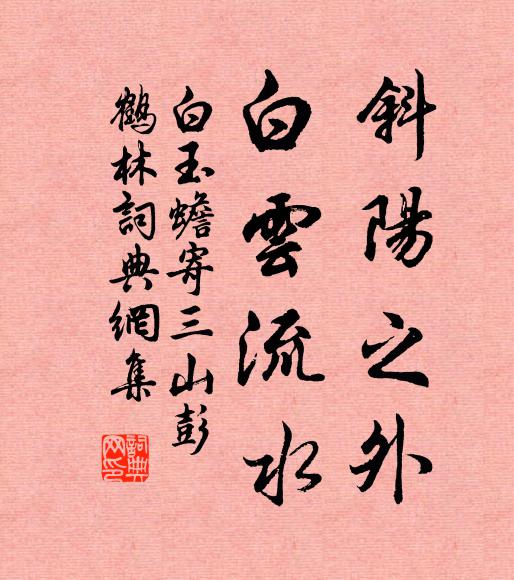 斜陽之外
白雲流水
白玉蟾寄三山彭
鶴林詞典網集
詞典网印